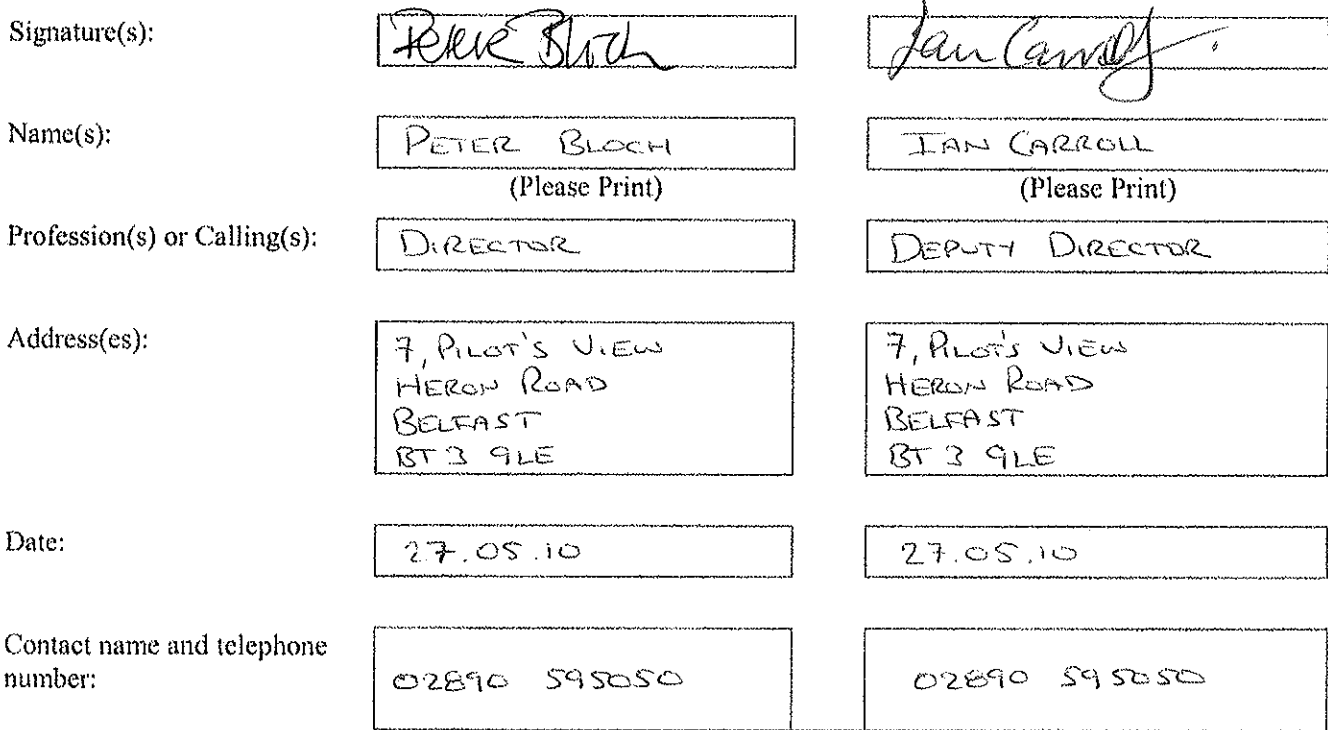 Signature(s): Peter Bloch Ian Carroll
Name(s): PETER BLOCH IAN CARROLL
(Please Print) (Please Print)
Profession(s) or Calling(s): DIRECTOR DEPUTY DIRECTOR
Address(es): 7, PILOT'S VIEW 7, PILOT'S VIEW
HERON ROAD HERON ROAD
BELFAST BELFAST
BT3 9LE BT3 9LE
Date: 27.05.10 27.05.10
Contact name and telephone
number: 02890 595050 02890 595050